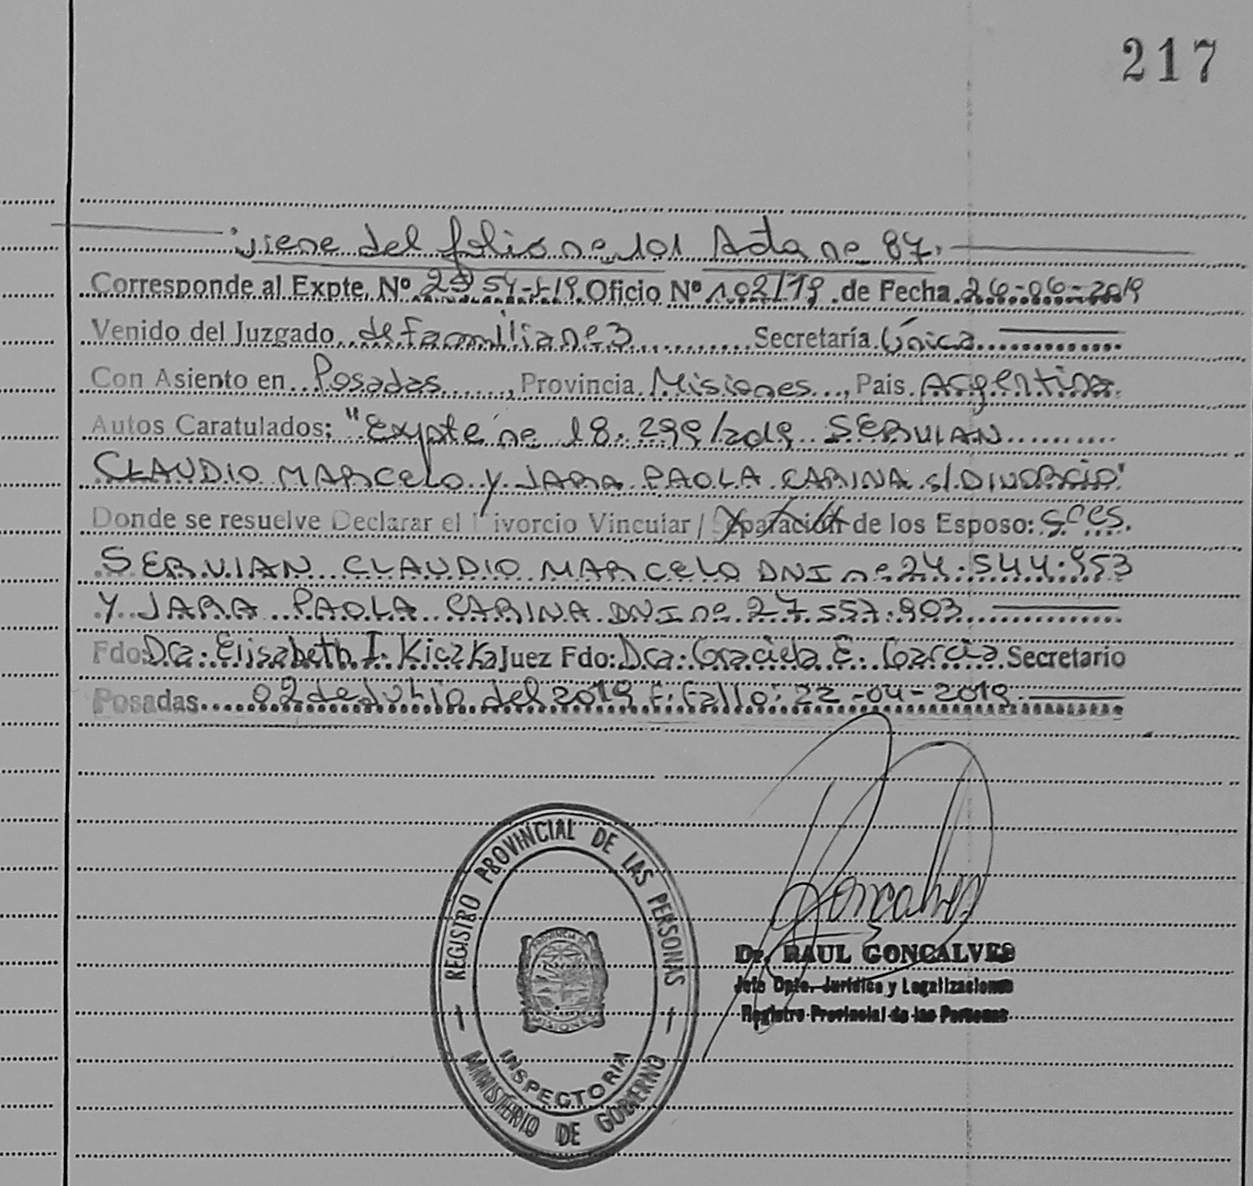 217
Viene del folio nº 101 Acta nº 87.
Corresponde al Expte. Nº 2954-J-19 Oficio Nº 102/19 de Fecha 26-06-2019
Venido del Juzgado de familia nº 3 Secretaría Única
Con Asiento en Posadas, Provincia Misiones, Pais Argentina
Autos Caratulados: "Expte nº 18.299/2019 SERVIAN
CLAUDIO MARCELO y JARA PAOLA CARINA s/DIVORCIO"
Donde se resuelve Declarar el Divorcio Vincular / Separación de los Esposo: Sres.
SERVIAN CLAUDIO MARCELO DNI nº 24.544.953
Y JARA PAOLA CARINA DNI nº 27.557.903
Fdo: Dra. Elisabeth I. Kiczka Juez Fdo: Dra. Graciela E. Garcia Secretario
Posadas 02 de Julio del 2019 F. Fallo: 22-04-2019
REGISTRO PROVINCIAL DE LAS PERSONAS
PROVINCIA DE
MISIONES
INSPECTORIA
MINISTERIO DE GOBIERNO
Goncalves
Dr. RAUL GONCALVES
Jefe Dpto. Jurídico y Legalizaciones
Registro Provincial de las Personas